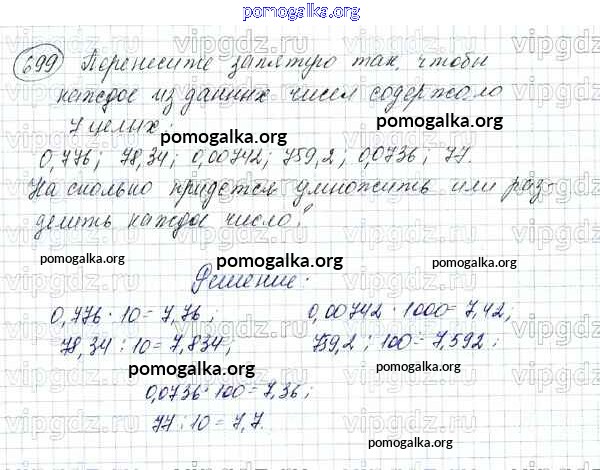 pomogalka.org
699 Перенесите запятую так, чтобы
каждое из данных чисел содержало
7 целых.
pomogalka.org pomogalka.org
0,776; 78,34; 0,00742; 759,2; 0,0736; 77.
На сколько придется умножить или раз-
делить каждое число?
pomogalka.org pomogalka.org pomogalka.org
Решение:
0,776 · 10 = 7,76; 0,00742 : 1000 = 7,42;
78,34 : 10 = 7,834; 759,2 : 100 = 7,592;
pomogalka.org pomogalka.org
0,0736 · 100 = 7,36;
77 : 10 = 7,7.
pomogalka.org pomogalka.org